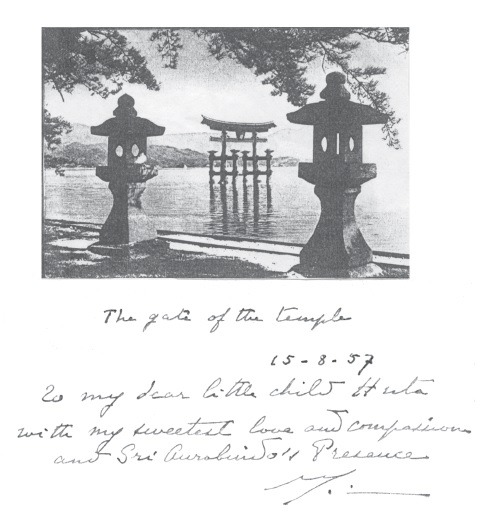 The gate of the temple
15-8-57
To my dear little child Huta
with my sweetest love and compassion
and Sri Aurobindo's Presence